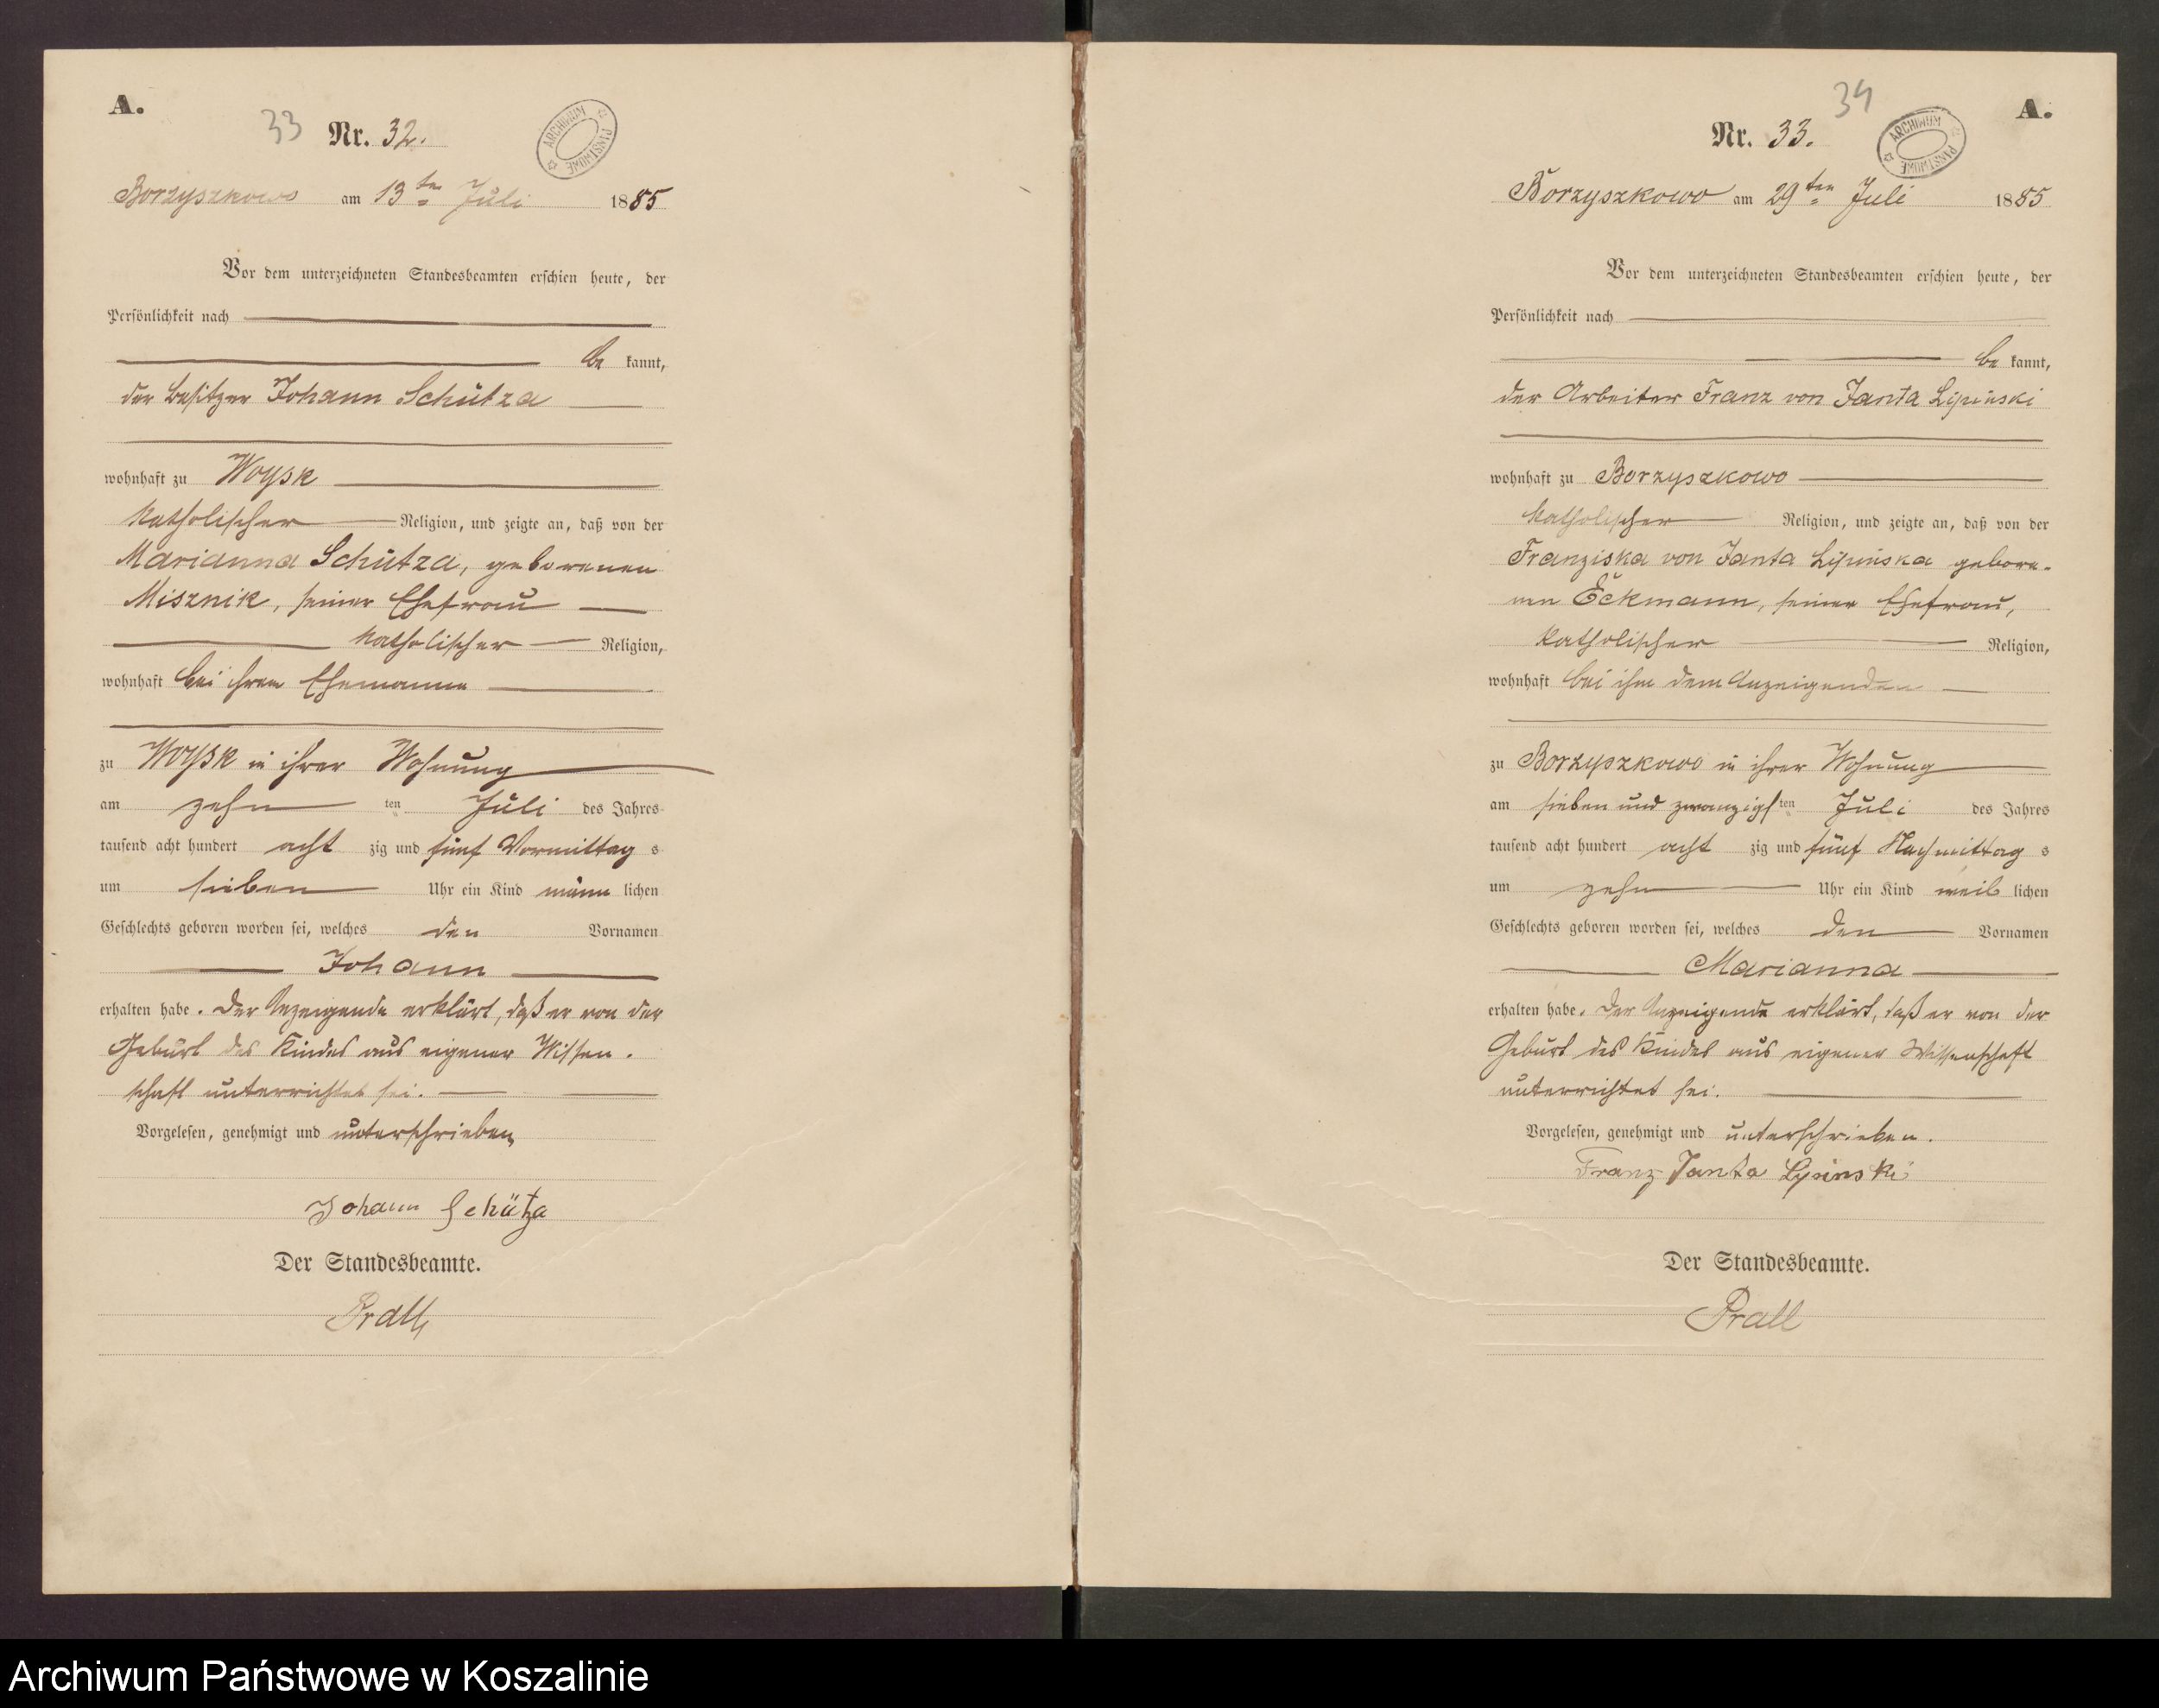 A.
33
Nr. 32.
ARCHIWUM PAŃSTWOWE
Borzyszkowo am 13ten Juli 1885
Vor dem unterzeichneten Standesbeamten erschien heute, der
Persönlichkeit nach
be kannt,
der Besitzer Johann Schütza
wohnhaft zu Woysk
katholischer Religion, und zeigte an, daß von der
Marianna Schütza, geborenen
Misznik, seiner Ehefrau
katholischer Religion,
wohnhaft bei ihrem Ehemanne
zu Woysk in ihrer Wohnung
am zehn ten Juli des Jahres
tausend acht hundert acht zig und fünf Vormittag s
um sieben Uhr ein Kind männ lichen
Geschlechts geboren worden sei, welches den Vornamen
Johann
erhalten habe. Der Anzeigende erklärt, daß er von der
Geburt des Kindes aus eigener Wissen-
schaft unterrichtet sei.
Vorgelesen, genehmigt und unterschrieben
Johann Schütza
Der Standesbeamte.
Prall
34
A.
Nr. 33.
ARCHIWUM PAŃSTWOWE
Borzyszkowo am 29ten Juli 1885
Vor dem unterzeichneten Standesbeamten erschien heute, der
Persönlichkeit nach
be kannt,
der Arbeiter Franz von Janta Lipinski
wohnhaft zu Borzyszkowo
katholischer Religion, und zeigte an, daß von der
Franziska von Janta Lipinska gebore-
nen Eckmann, seiner Ehefrau,
katholischer Religion,
wohnhaft bei ihm dem Anzeigenden
zu Borzyszkowo in ihrer Wohnung
am sieben und zwanzigs ten Juli des Jahres
tausend acht hundert acht zig und fünf Nachmittag s
um zehn Uhr ein Kind weib lichen
Geschlechts geboren worden sei, welches den Vornamen
Marianna
erhalten habe. Der Anzeigende erklärt, daß er von der
Geburt des Kindes aus eigener Wissenschaft
unterrichtet sei.
Vorgelesen, genehmigt und unterschrieben.
Franz Janta Lipinski
Der Standesbeamte.
Prall
Archiwum Państwowe w Koszalinie